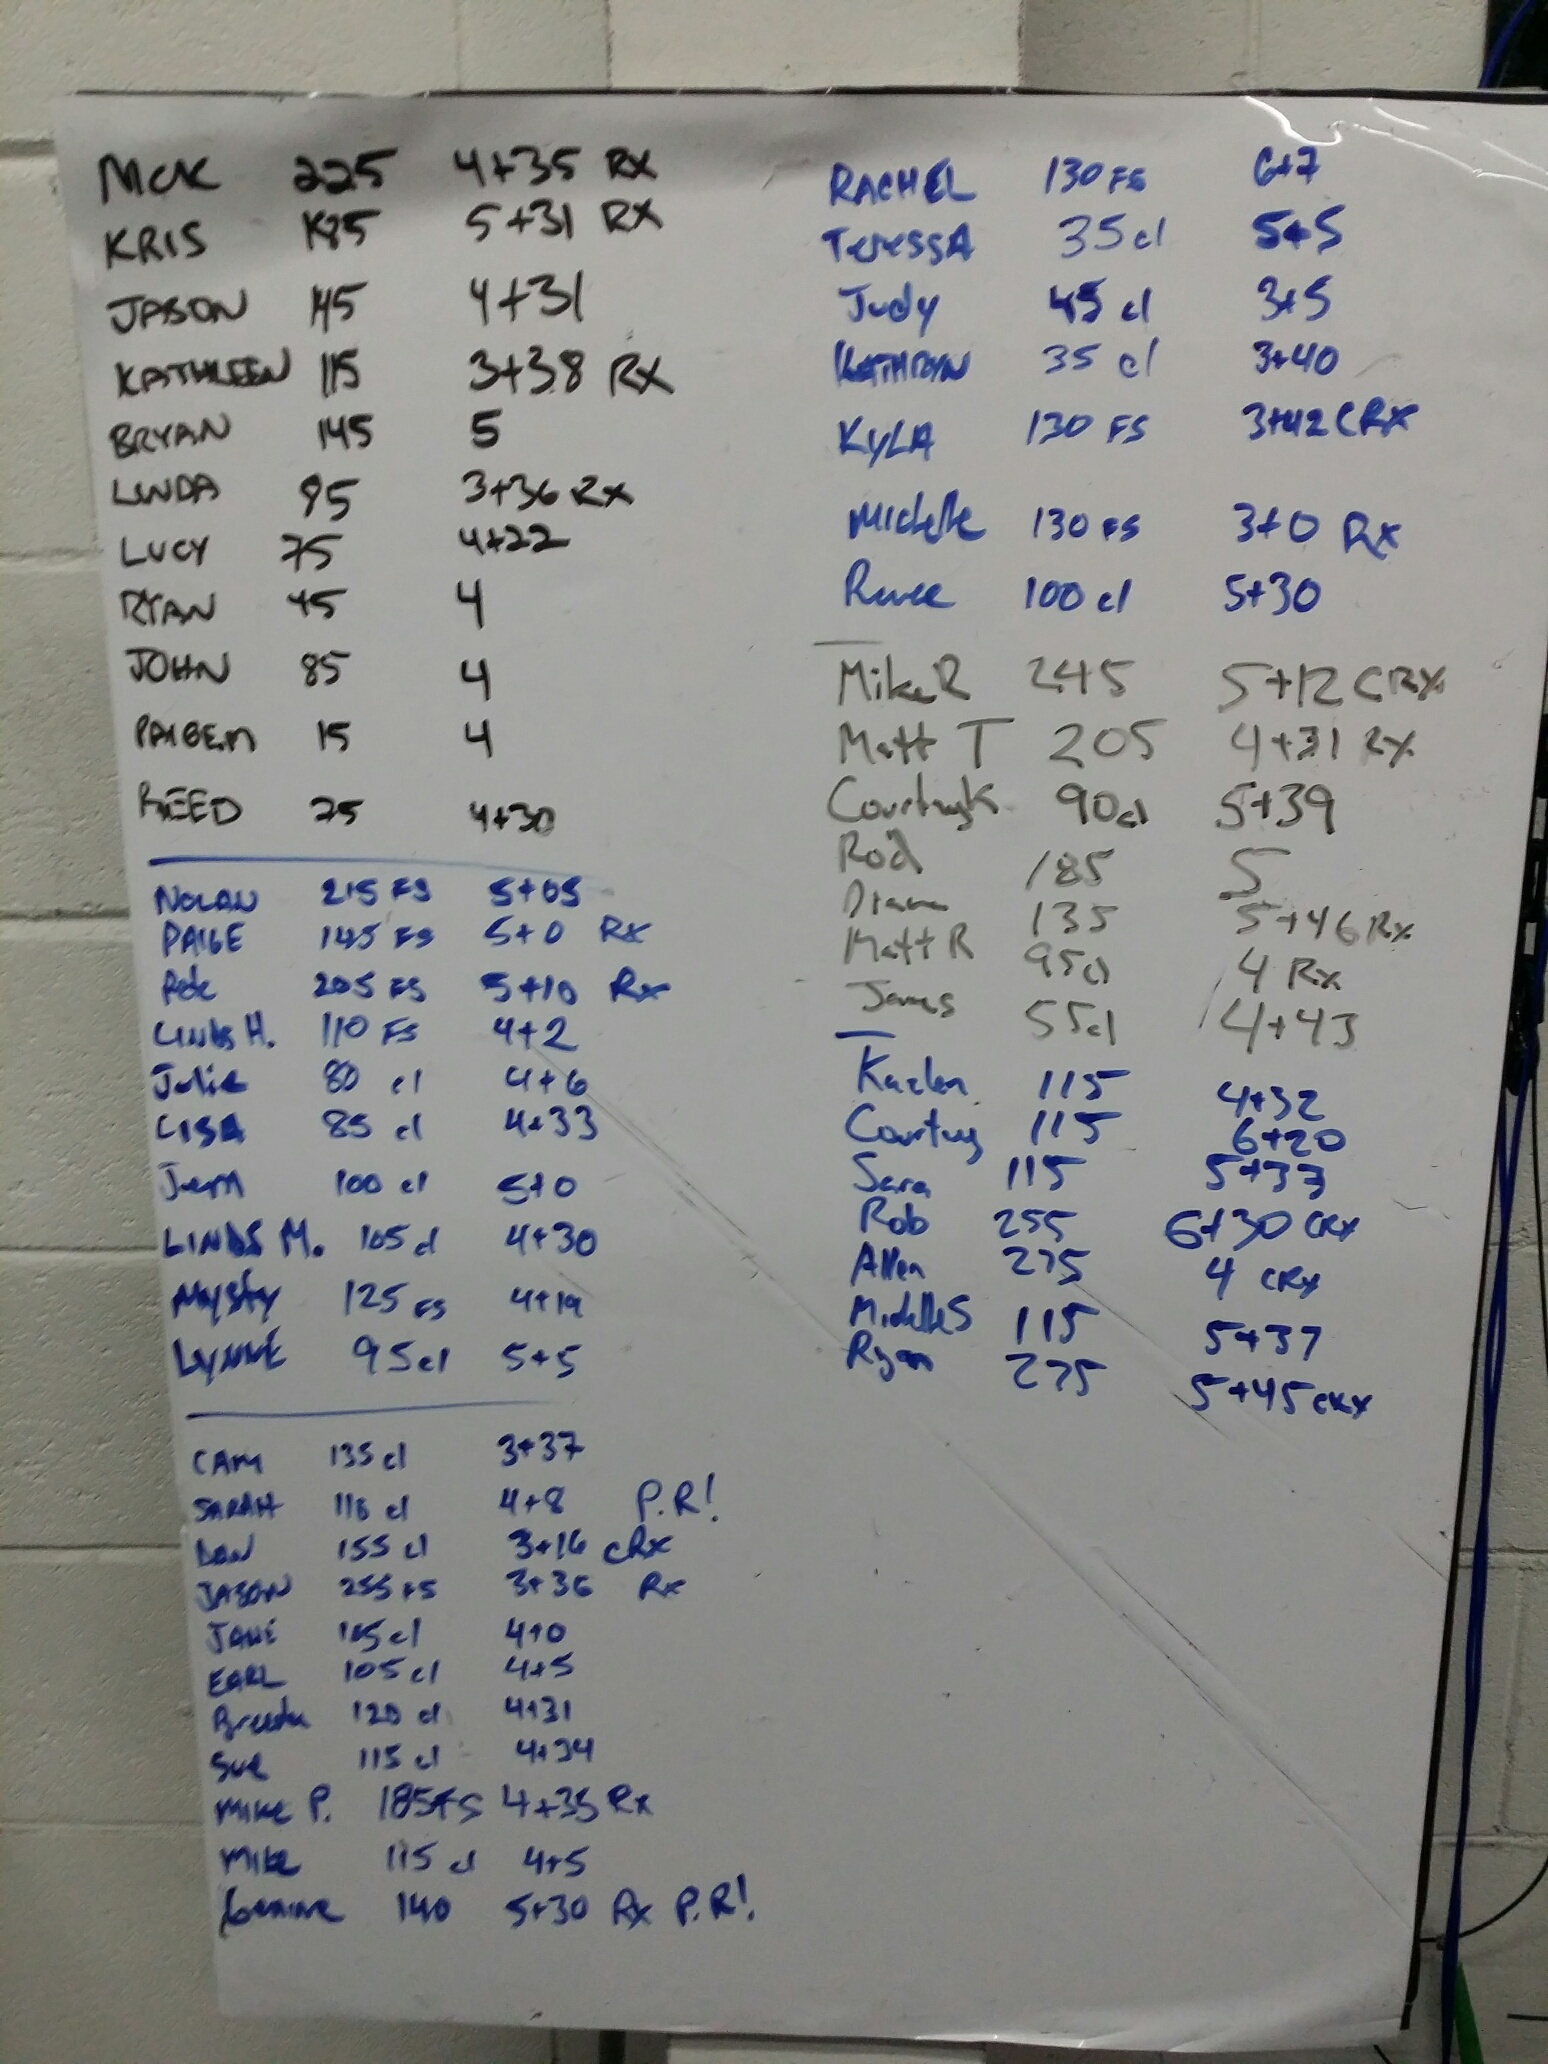 MCK 225 4+35 RX
KRIS 185 5+31 RX
JASON 145 4+31
KATHLEEN 115 3+38 RX
BRYAN 145 5
LINDA 95 3+36 RX
LUCY 75 4+22
RYAN 45 4
JOHN 85 4
PAIGE.M 15 4
REED 75 4+30
NOLAN 215 FS 5+05
PAIGE 145 FS 5+0 Rx
Pete 205 FS 5+10 Rx
LINDS H. 110 FS 4+2
Julie 80 cl 4+6
LISA 85 cl 4+33
Jerm 100 cl 5+0
LINDS M. 105 cl 4+30
Mysty 125 FS 4+19
LYNNE 95 cl 5+5
CAM 135 cl 3+37
SARAH 110 cl 4+8 P.R!
DAN 155 cl 3+16 CRx
JASON 255 FS 3+36 Rx
JANE 105 cl 4+0
EARL 105 cl 4+5
Brenda 120 cl 4+31
Sue 115 cl 4+34
Mike P. 185 FS 4+35 Rx
Mike 115 cl 4+5
140 5+30 Rx P.R!
RACHEL 130 FS 6+7
TeressA 35 cl 5+5
Judy 45 cl 3+5
KATHRYN 35 cl 3+40
KyLA 130 FS 3+42 CRx
Michelle 130 FS 3+0 Rx
Renee 100 cl 5+30
Mike R 245 5+12 CRX
Matt T 205 4+31 RX
Courtney K 90 cl 5+39
Rod 185 5
Diana 135 5+46 Rx
Matt R 95 cl 4 Rx
James 55 cl 4+43
Kaelen 115 4+32
Courtney 115 6+20
Sara 115 5+37
Rob 255 6+30 CRX
Allen 275 4 CRX
Michelle S 115 5+37
Ryan 275 5+45 CRX